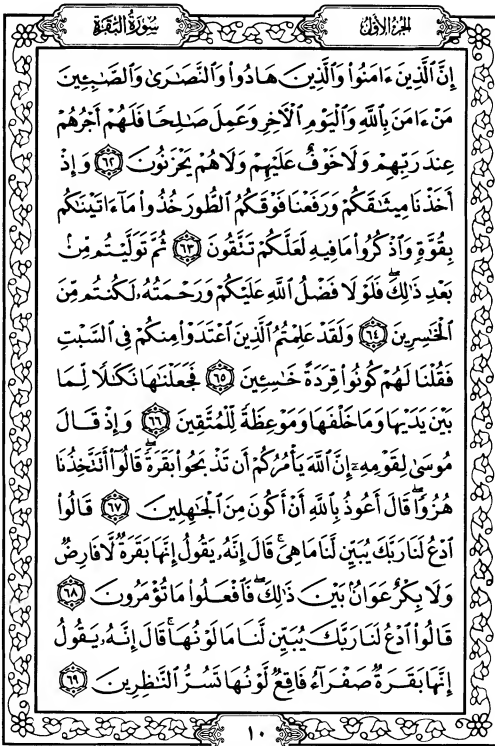 سُورَةُ البَقَرَةِ
الجُزءُ الأوَّلُ
إِنَّ ٱلَّذِينَ ءَامَنُوا۟ وَٱلَّذِينَ هَادُوا۟ وَٱلنَّصَٰرَىٰ وَٱلصَّٰبِـِٔينَ
مَنْ ءَامَنَ بِٱللَّهِ وَٱلْيَوْمِ ٱلْءَاخِرِ وَعَمِلَ صَٰلِحًا فَلَهُمْ أَجْرُهُمْ
عِندَ رَبِّهِمْ وَلَا خَوْفٌ عَلَيْهِمْ وَلَا هُمْ يَحْزَنُونَ ٦٢ وَإِذْ
أَخَذْنَا مِيثَٰقَكُمْ وَرَفَعْنَا فَوْقَكُمُ ٱلطُّورَ خُذُوا۟ مَآ ءَاتَيْنَٰكُم
بِقُوَّةٍ وَٱذْكُرُوا۟ مَا فِيهِ لَعَلَّكُمْ تَتَّقُونَ ٦٣ ثُمَّ تَوَلَّيْتُم مِّنۢ
بَعْدِ ذَٰلِكَ ۖ فَلَوْلَا فَضْلُ ٱللَّهِ عَلَيْكُمْ وَرَحْمَتُهُۥ لَكُنتُم مِّنَ
ٱلْخَٰسِرِينَ ٦٤ وَلَقَدْ عَلِمْتُمُ ٱلَّذِينَ ٱعْتَدَوْا۟ مِنكُمْ فِى ٱلسَّبْتِ
فَقُلْنَا لَهُمْ كُونُوا۟ قِرَدَةً خَٰسِـِٔينَ ٦٥ فَجَعَلْنَٰهَا نَكَٰلًا لِّمَا
بَيْنَ يَدَيْهَا وَمَا خَلْفَهَا وَمَوْعِظَةً لِّلْمُتَّقِينَ ٦٦ وَإِذْ قَالَ
مُوسَىٰ لِقَوْمِهِۦٓ إِنَّ ٱللَّهَ يَأْمُرُكُمْ أَن تَذْبَحُوا۟ بَقَرَةً ۖ قَالُوٓا۟ أَتَتَّخِذُنَا
هُزُوًا ۖ قَالَ أَعُوذُ بِٱللَّهِ أَنْ أَكُونَ مِنَ ٱلْجَٰهِلِينَ ٦٧ قَالُوا۟
ٱدْعُ لَنَا رَبَّكَ يُبَيِّن لَّنَا مَا هِىَ ۚ قَالَ إِنَّهُۥ يَقُولُ إِنَّهَا بَقَرَةٌ لَّا فَارِضٌ
وَلَا بِكْرٌ عَوَانٌۢ بَيْنَ ذَٰلِكَ ۖ فَٱفْعَلُوا۟ مَا تُؤْمَرُونَ ٦٨
قَالُوا۟ ٱدْعُ لَنَا رَبَّكَ يُبَيِّن لَّنَا مَا لَوْنُهَا ۚ قَالَ إِنَّهُۥ يَقُولُ
إِنَّهَا بَقَرَةٌ صَفْرَآءُ فَاقِعٌ لَّوْنُهَا تَسُرُّ ٱلنَّٰظِرِينَ ٦٩
١٠